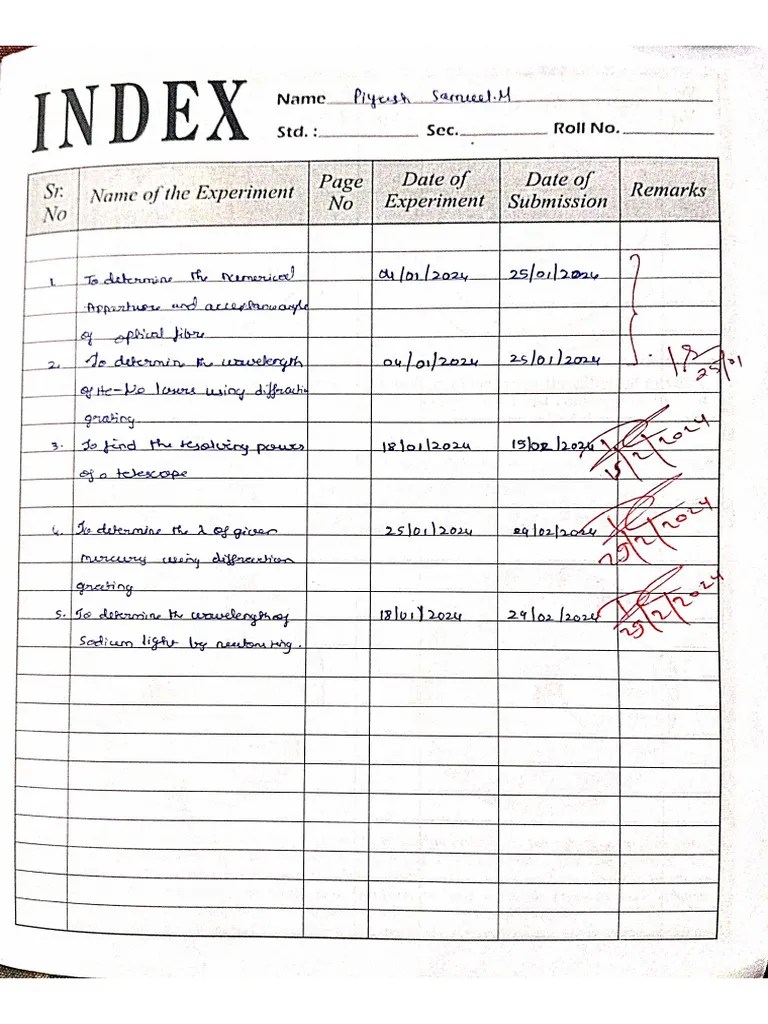 INDEX
Name Piyush Samuel.M
Std. : Sec. Roll No.
Sr. No Name of the Experiment Page No Date of Experiment Date of Submission Remarks
1. To determine the Numerical 04/01/2024 25/01/2024
Apperture and acceptance angle
of optical fibre
2. To determin the wavelength 04/01/2024 25/01/2024
25/01
of He-Ne lasers using diffraction
grating
3. To find the resolving power 18/01/2024 15/02/2024
of a telescope 15/2/2024
4. To determine the λ of given 25/01/2024 29/02/2024
mercury using diffraction 29/2/2024
grating
5. To determine the wavelength of 18/01/2024 29/02/2024
Sodium light by newtons ring. 29/2/2024